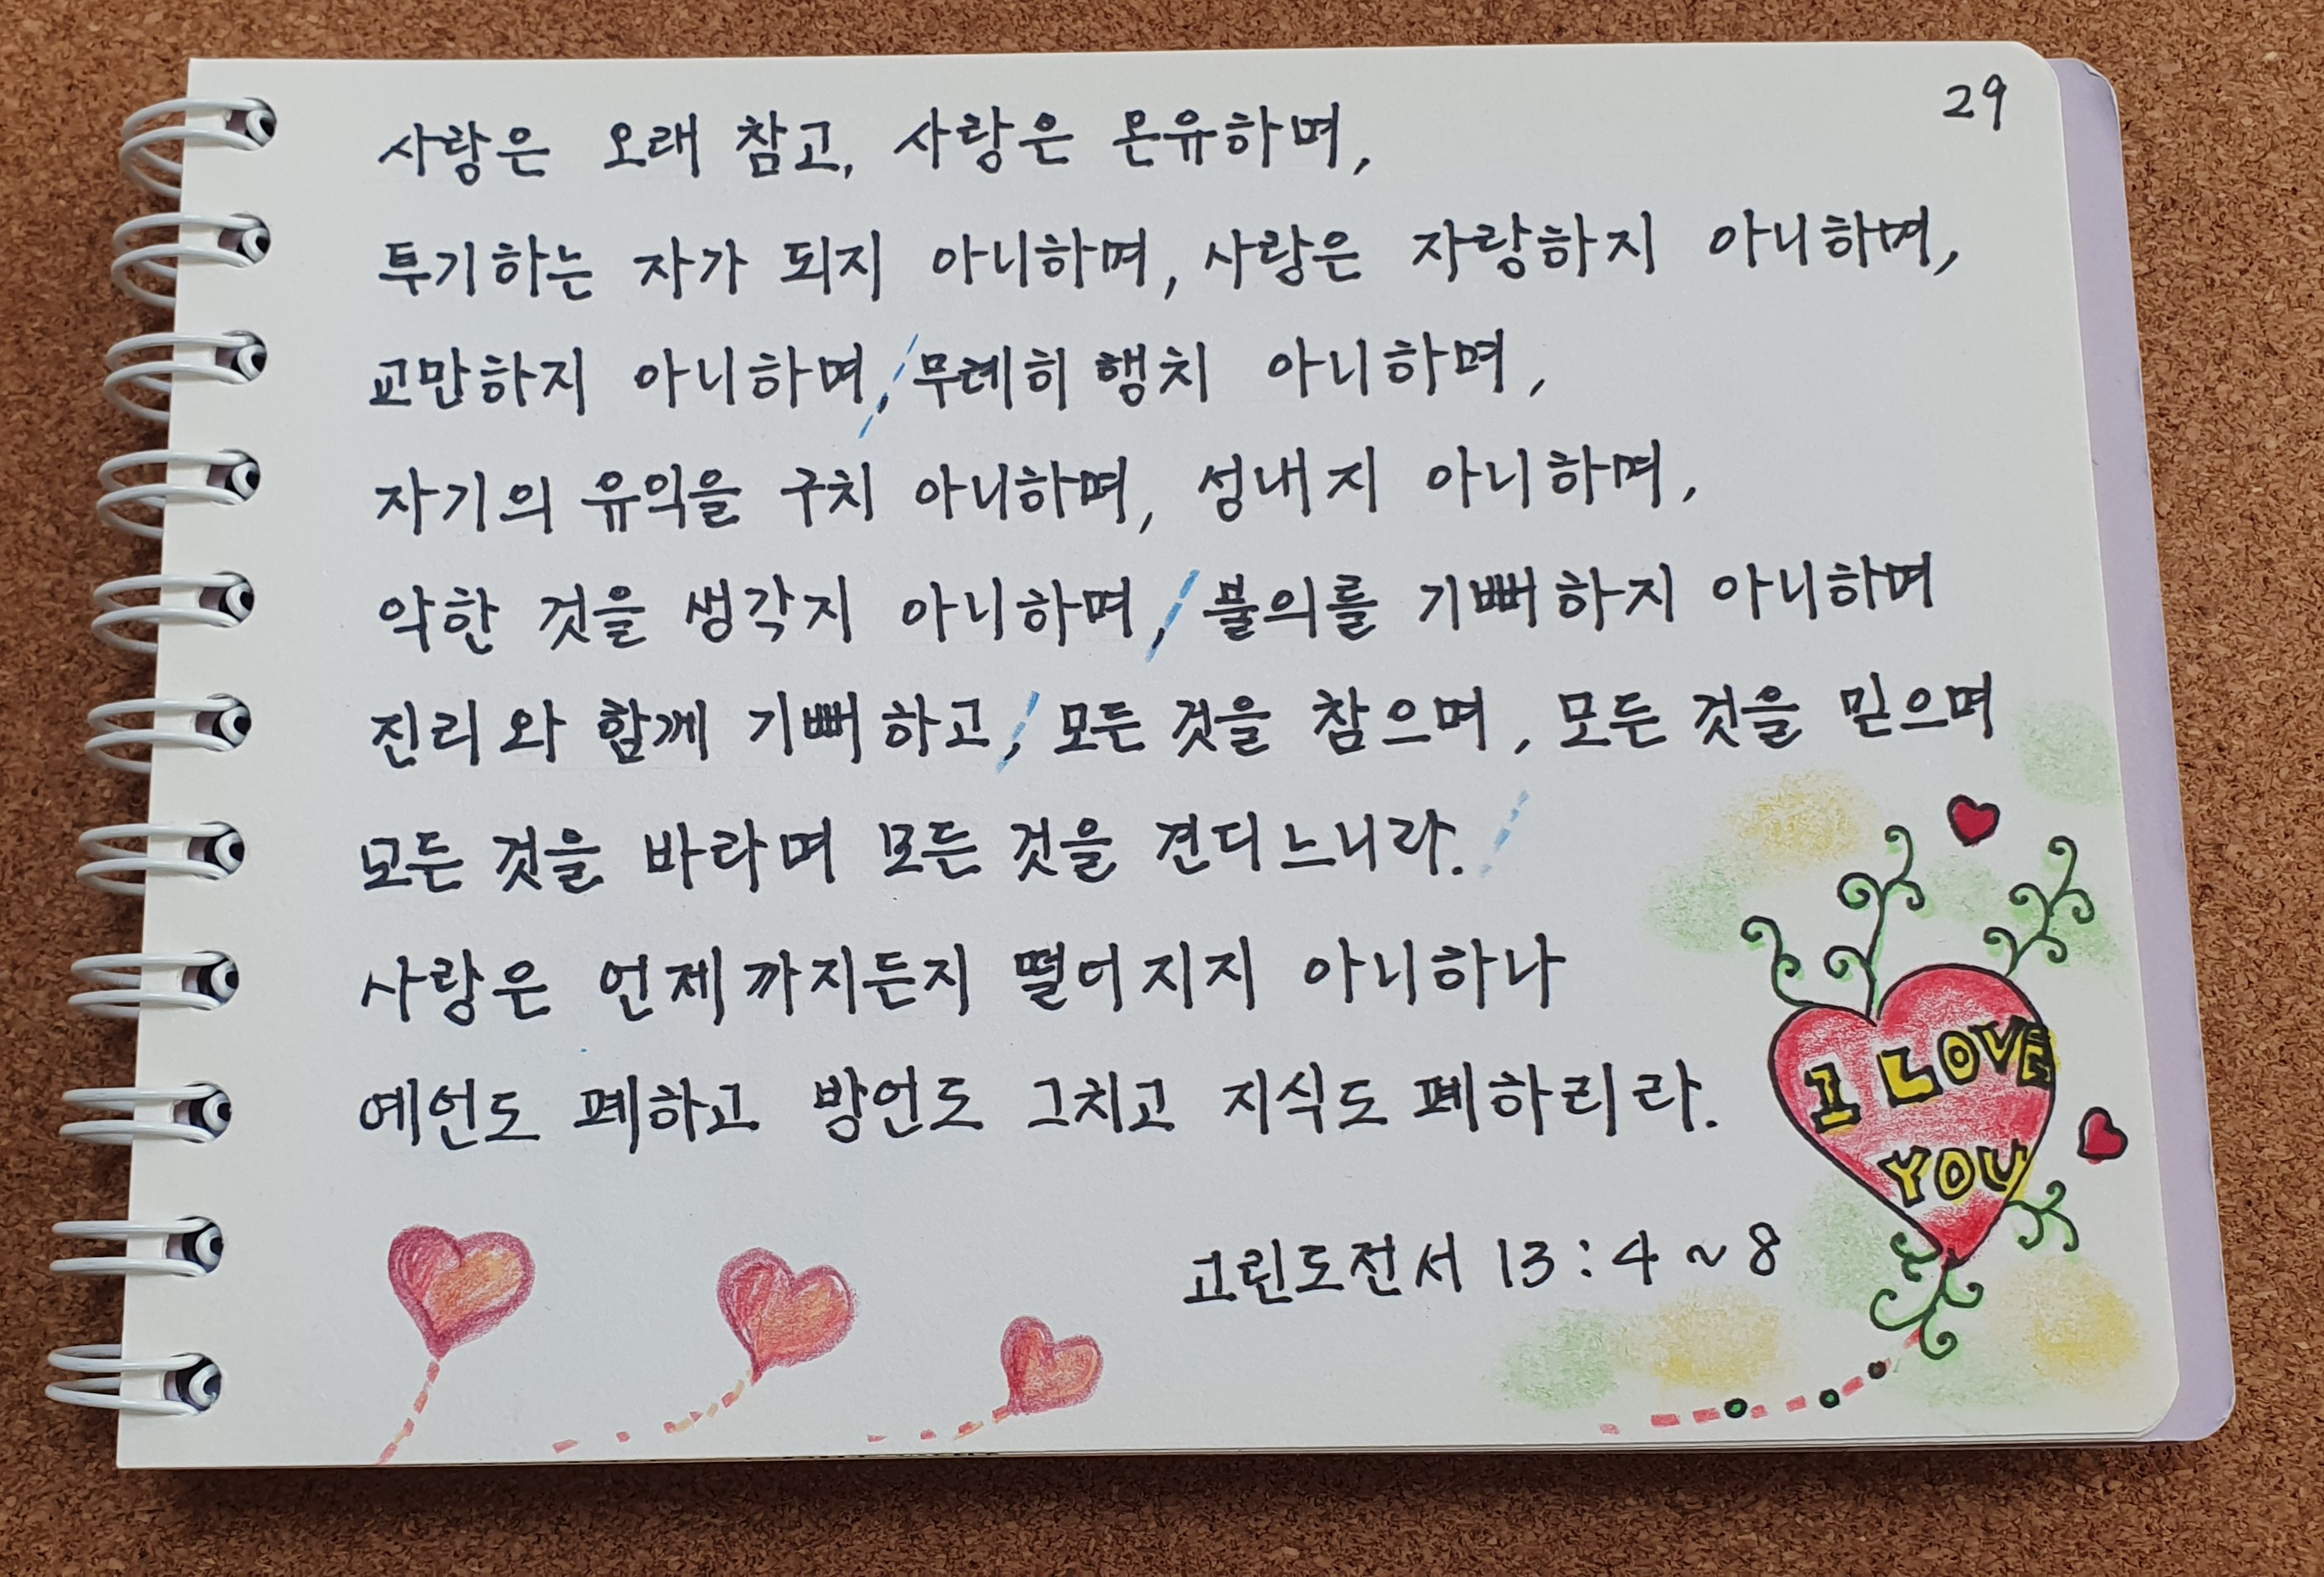 29
사랑은 오래 참고, 사랑은 온유하며,
투기하는 자가 되지 아니하며, 사랑은 자랑하지 아니하며,
교만하지 아니하며, 무례히 행치 아니하며,
자기의 유익을 구치 아니하며, 성내지 아니하며,
악한 것을 생각지 아니하며, 불의를 기뻐하지 아니하며
진리와 함께 기뻐하고, 모든 것을 참으며, 모든 것을 믿으며
모든 것을 바라며 모든 것을 견디느니라.
사랑은 언제까지든지 떨어지지 아니하나
예언도 폐하고 방언도 그치고 지식도 폐하리라.
고린도전서 13:4~8
I LOVE
YOU